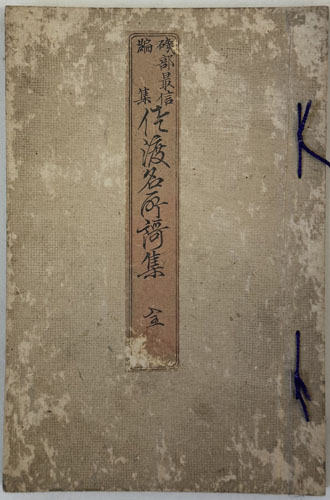 磯部最信
編集
佐渡名所謌集 全